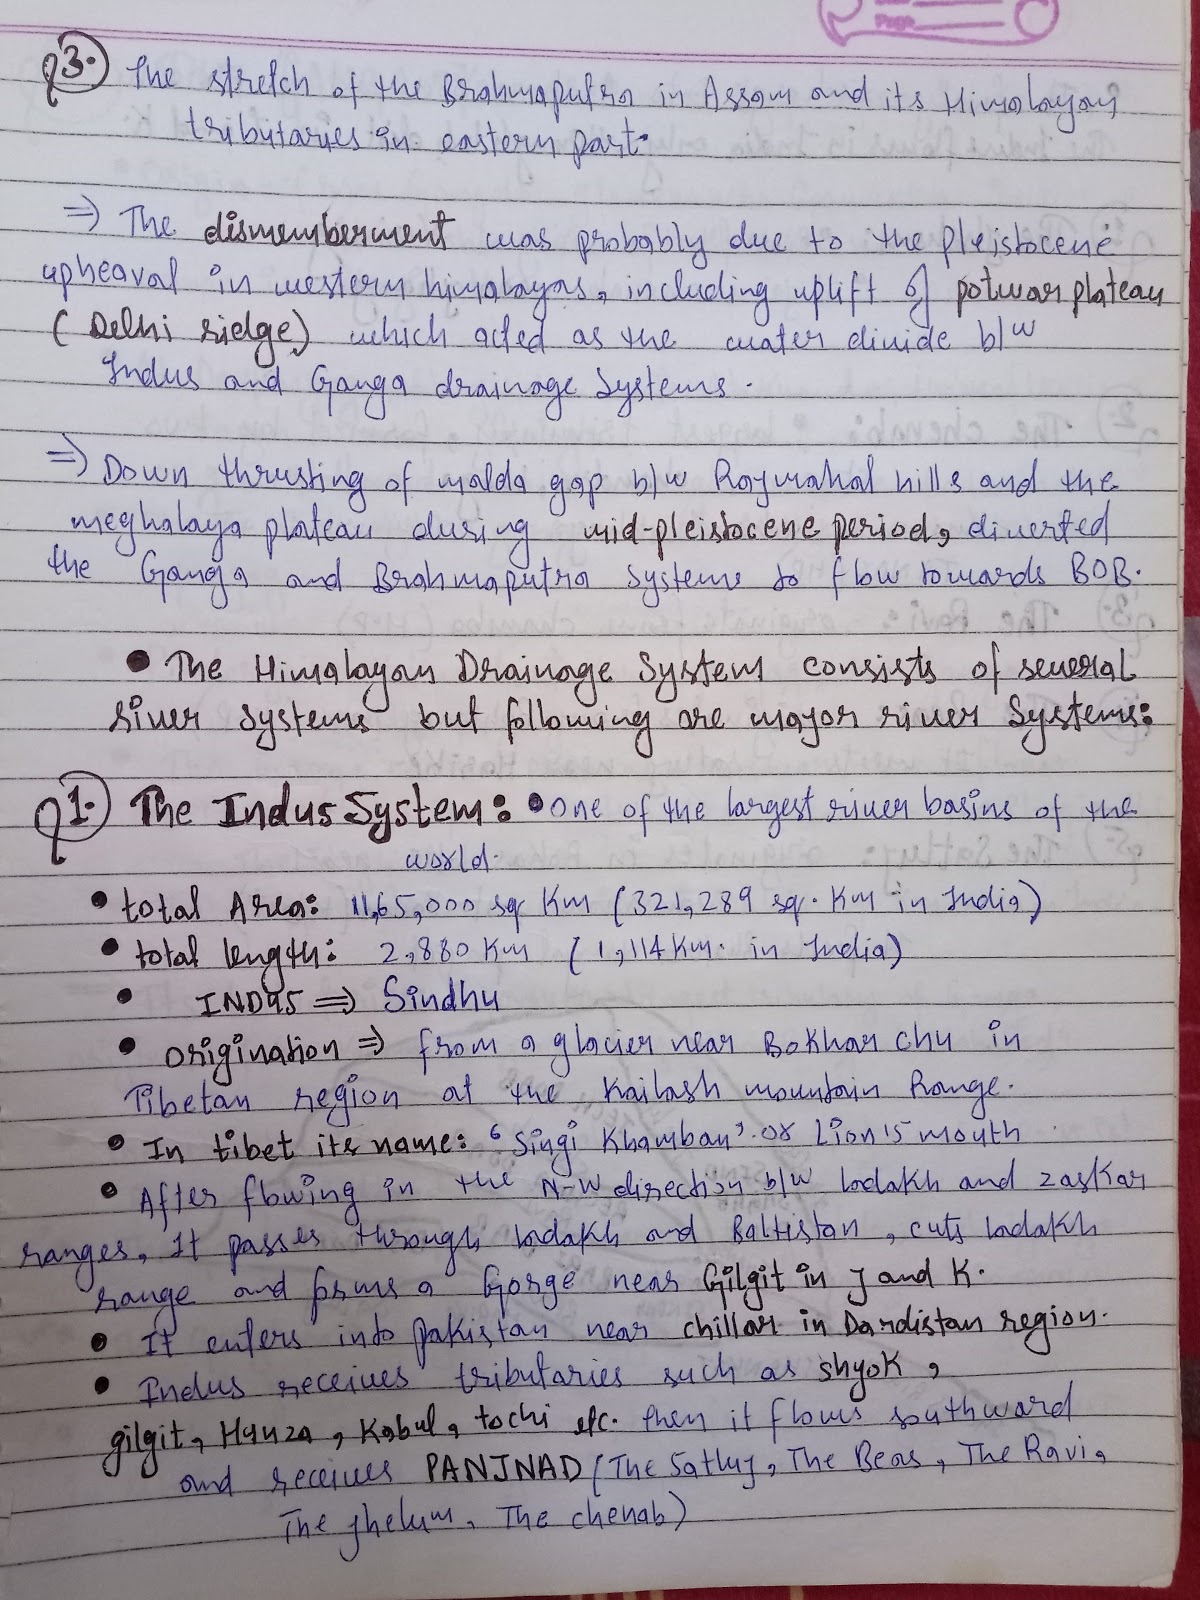 Page
3. The stretch of the Brahmaputra in Assam and its Himalayan
tributaries in eastern part.
⇒ The dismemberment was probably due to the pleistocene
upheaval in western himalayas, including uplift of potwar plateau
(Delhi ridge) which acted as the water divide b/w
Indus and Ganga drainage Systems.
⇒ Down thrusting of malda gap b/w Rajmahal hills and the
meghalaya plateau during mid-pleistocene period, diverted
the Ganga and Brahmaputra systems to flow towards BOB.
• The Himalayan Drainage System consists of several
river systems but following are major river Systems:
1. The Indus System: • One of the largest river basins of the
world.
• total Area: 11,65,000 sq Km (321,289 sq. Km in India)
• total length: 2,880 Km (1,114 Km. in India)
• INDUS ⇒ Sindhu
• Origination ⇒ from a glacier near Bokhar chu in
Tibetan region at the Kailash mountain Range.
• In tibet its name: 'Singi Khamban'. or Lion's mouth
• After flowing in the N-W direction b/w ladakh and zaskar
ranges, It passes through ladakh and Baltistan, cuts ladakh
range and forms a Gorge near Gilgit in J and K.
• It enters into pakistan near chillar in Dardistan region.
• Indus receives tributaries such as shyok,
gilgit, Hunza, Kabul, tochi etc. then it flows southward
and receives PANJNAD (The Satluj, The Beas, The Ravi,
The jhelum, The chenab)